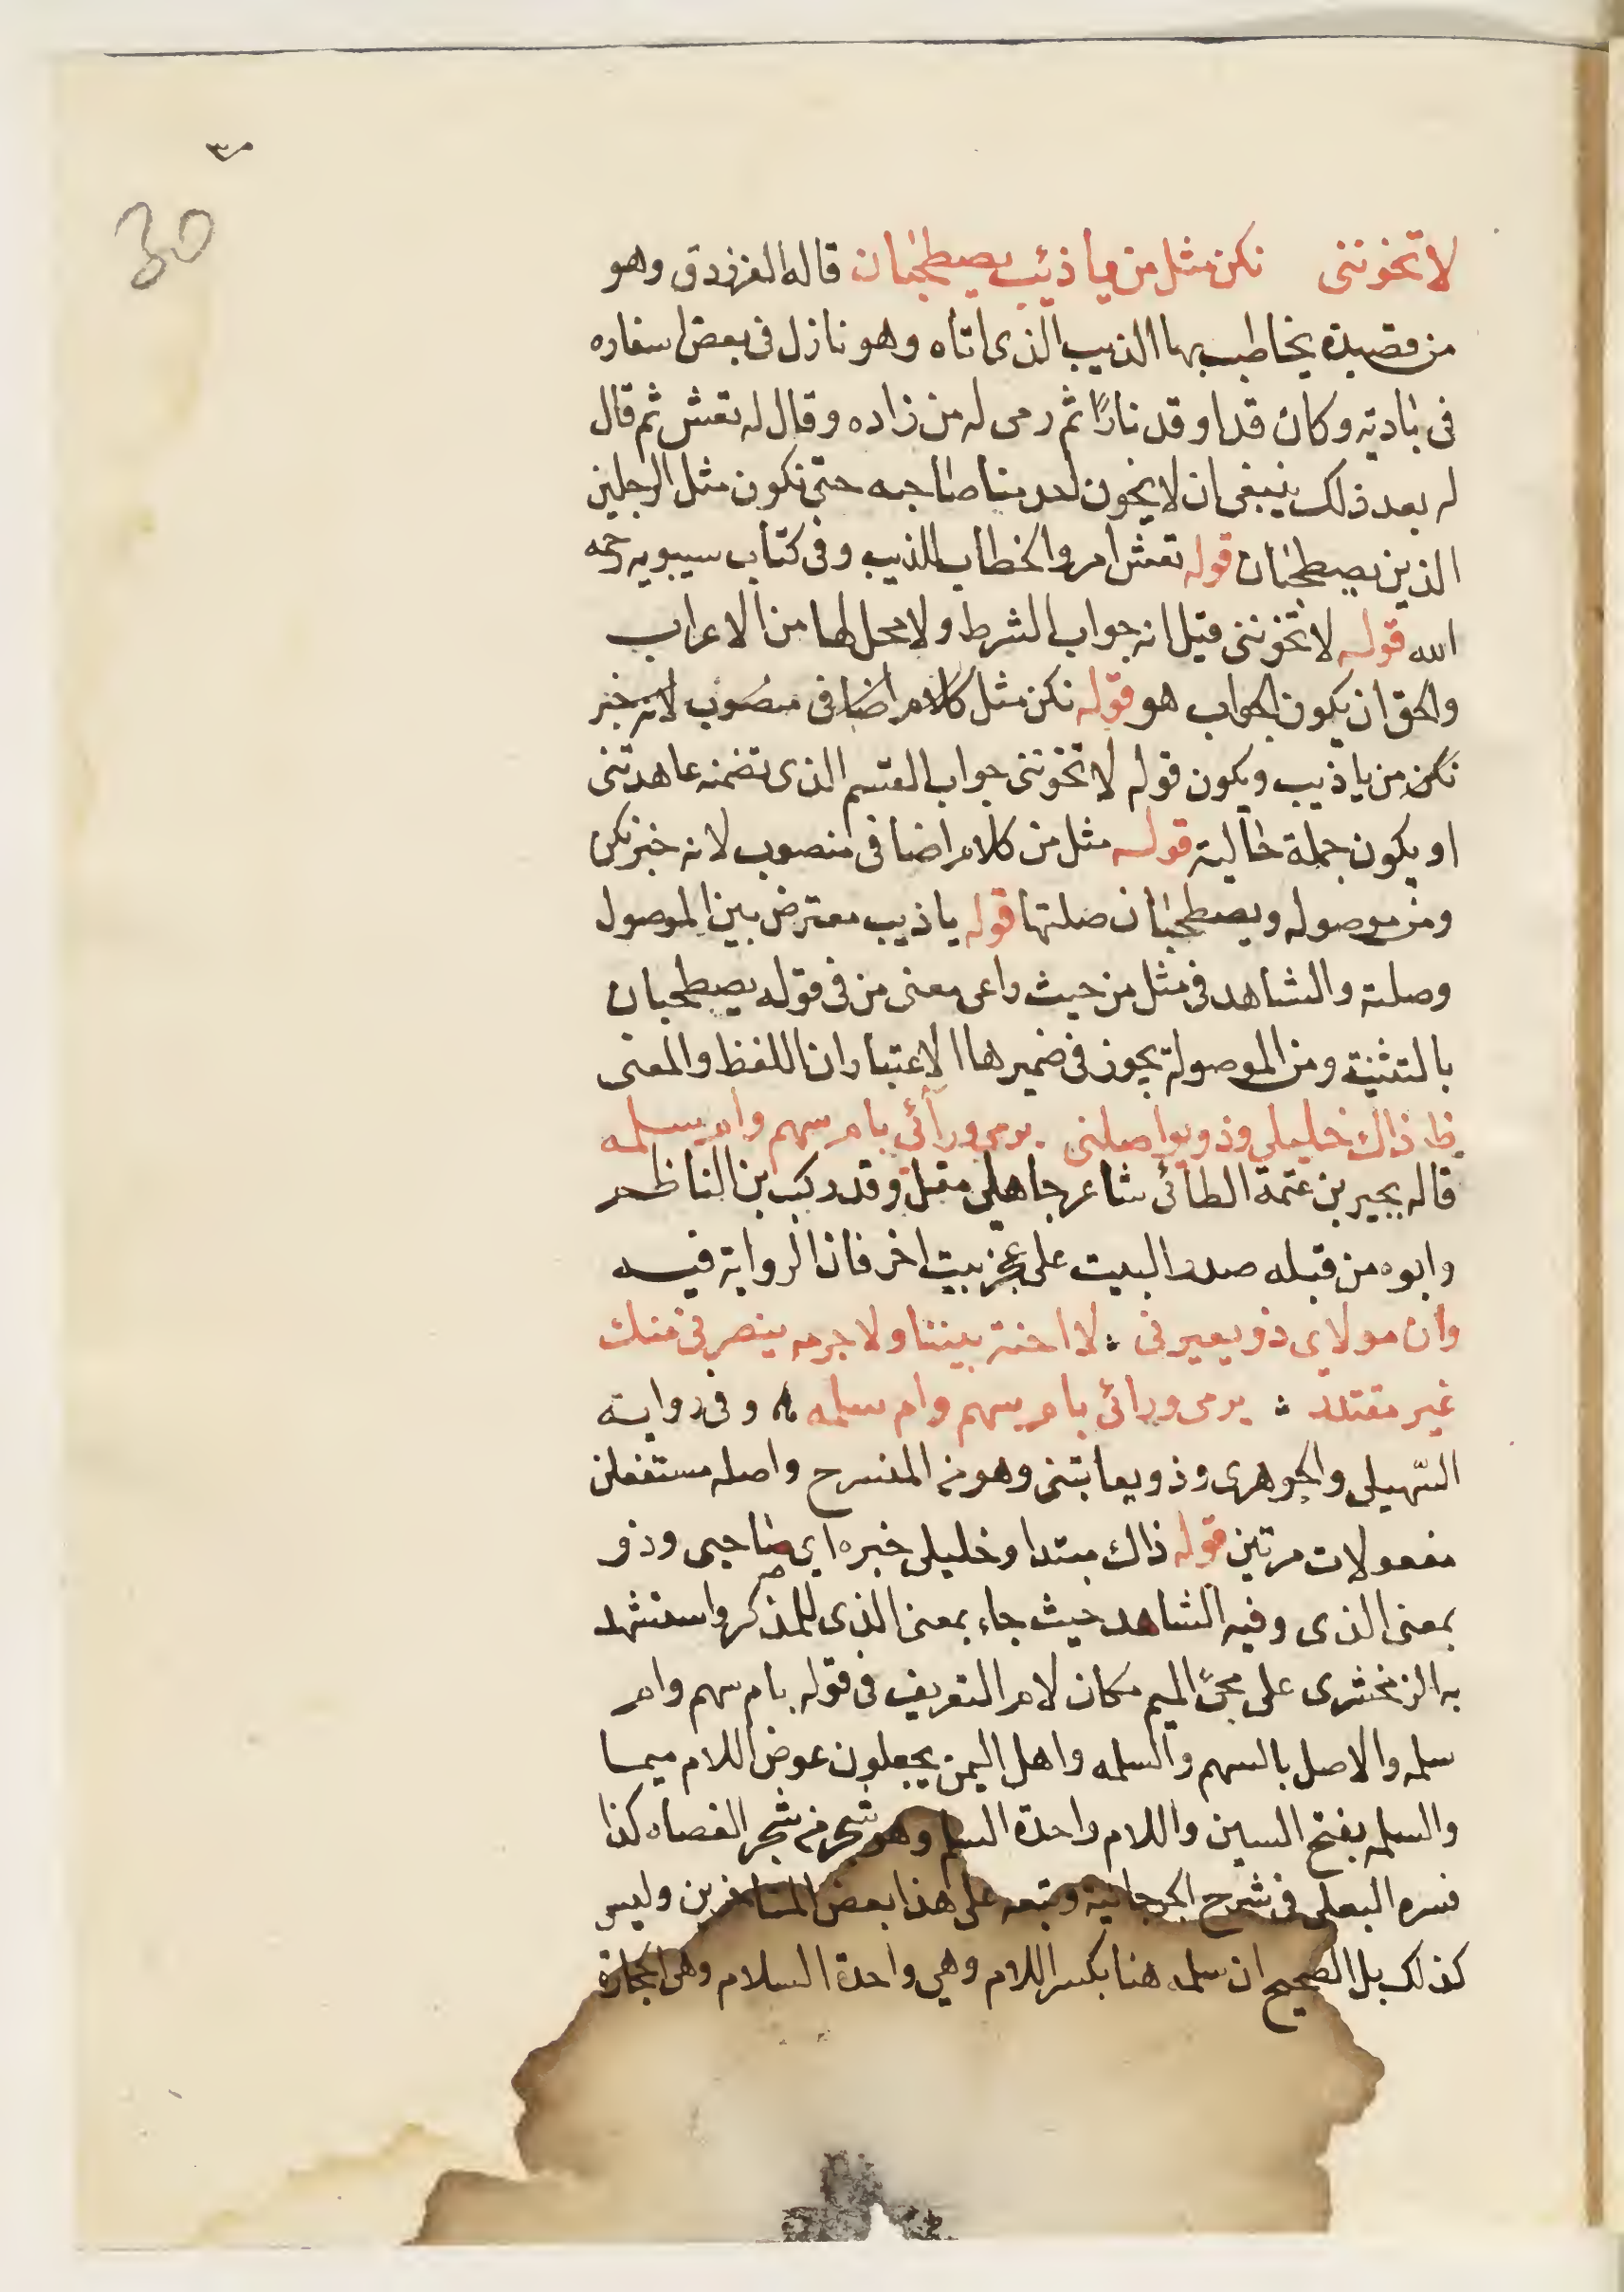 ٣٠
30
لا تخونني نكن مثل من يا ذئب يصطحبان قاله الفرزدق وهو
من قصيدة يخاطب بها الذيب الذي اتاه وهو نازل في بعض اسفاره
في بادية وكان قد اوقد نارًا ثم رمى له من زاده وقال له تعش ثم قال
له بعد ذلك ينبغي ان لا يخون احد منا صاحبه حتى نكون مثل الرجلين
الذين يصطحبان قوله تعش امر والخطاب للذيب وفي كتاب سيبويه رحمه
الله قوله لا تخونني قيل انه جواب الشرط ولا محل لها من الاعراب
والحق ان يكون الجواب هو قوله نكن مثل كلام اضافي منصوب لانه خبر
نكن من يا ذيب ويكون قوله لا تخونني جواب القسم الذي تضمنه عاهدتني
او يكون جملة حالية قوله مثل من كلام اضافي منصوب لانه خبر نكن
ومن موصوله ويصطحبان صلتها قوله يا ذيب معترض بين الموصول
وصلته والشاهد في مثل من حيث راعى معنى من في قوله يصطحبان
بالتثنية ومن الموصولة يجوز في ضميرها الاعتباران اللفظ والمعنى
ظ ذاك خليلي وذو يواصلني يرمي ورآئي بام سهم وام سلمه
قاله بجير بن عتمة الطآئي شاعر جاهلي مقل وقد ركب بن الناظم
وابوه من قبله صدر البيت على عجز بيت اخر فان الرواية فيه
وان مولاي ذو يعيرني لا احنة بيننا ولا جرمه ينصرني منك
غير معتذر يرمي ورائي بام سهم وام سلمه وفي رواية
السّهيلي والجوهري وذو يعاتبني وهو من المنسرح واصله مستفعلن
مفعولات مرتين قوله ذاك مبتدا وخليلي خبره اي صاحبي وذو
بمعنى الذي وفيه الشاهد حيث جاء بمعنى الذي للمذكر واستشهد
به الزمخشري على مجئ الميم مكان لام التعريف في قوله بام سهم وام
سلمه والاصل بالسهم والسلمه واهل اليمن يجعلون عوض اللام ميما
والسلمه بفتح السين واللام واحدة السلم وهو شجر من شجر العضاه كذا
فسره البعلي في شرح الجرجانية وتبعه على هذا بعض المتاخرين وليس
كذلك بل الصحيح ان سلمه هنا بكسر اللام وهي واحدة السلام وهي الحجارة